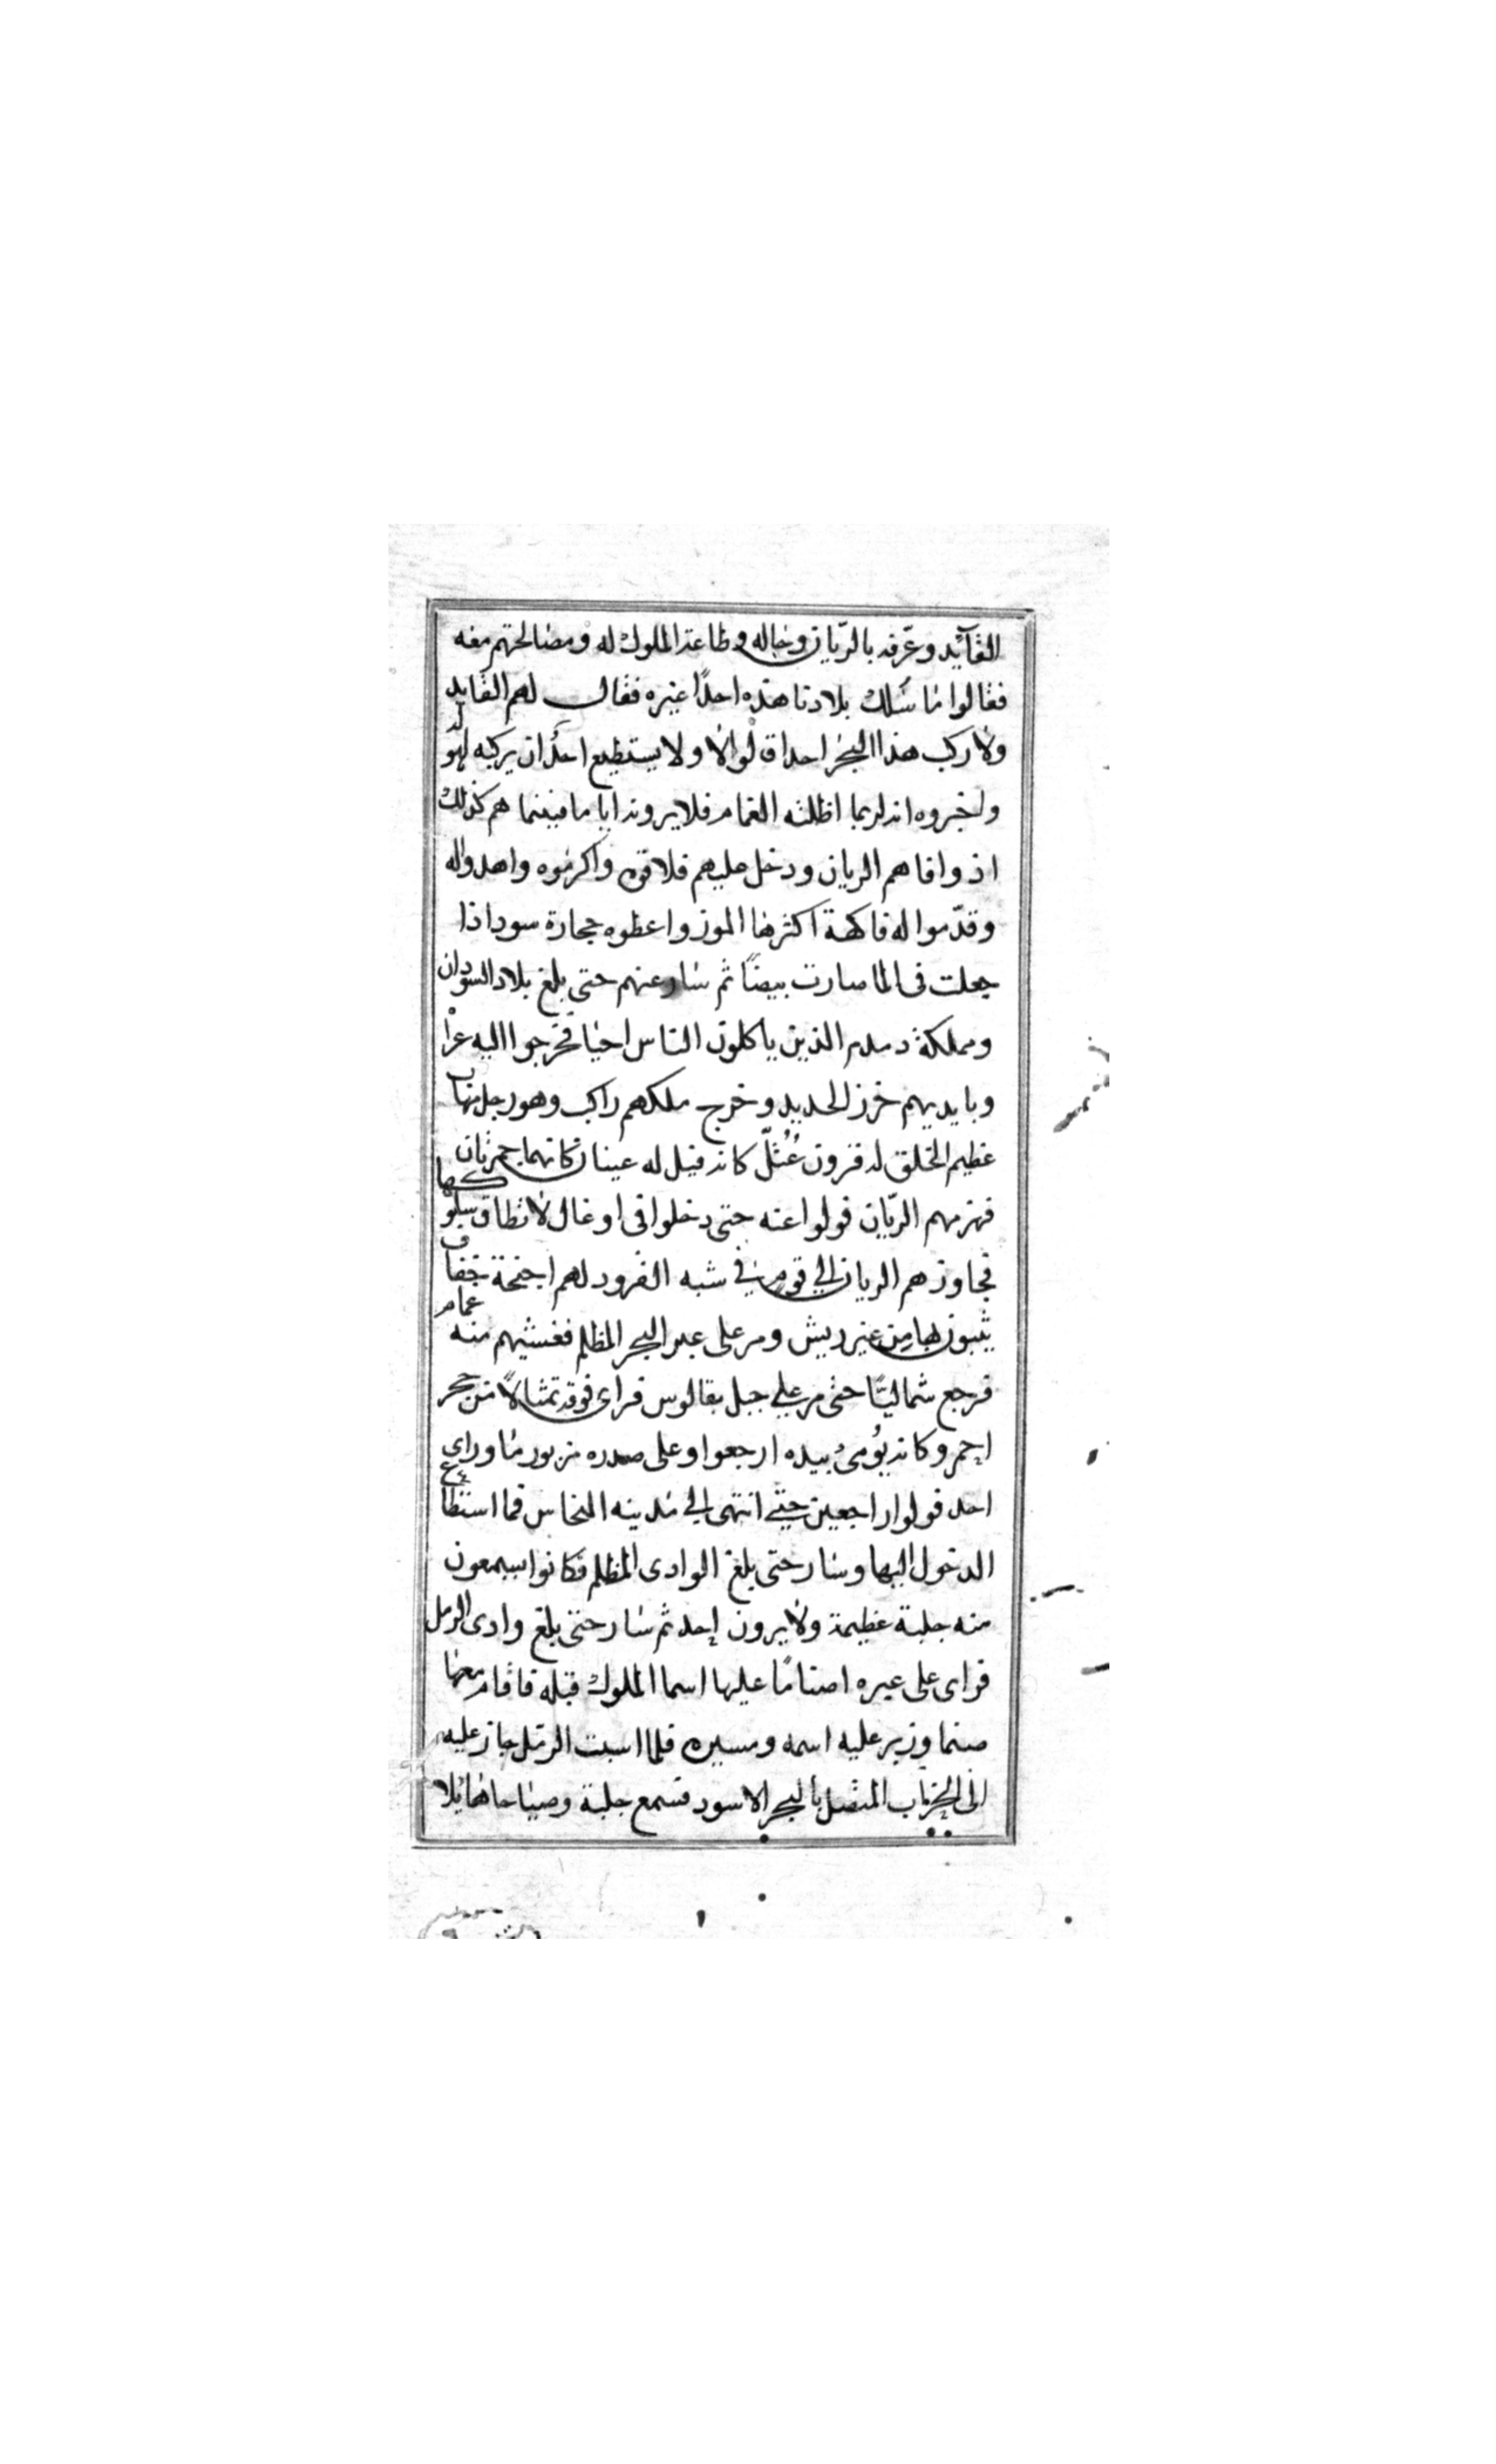 القآيد وعرّفه بالريّان وحاله وطاعة الملوك له ومصالحتهم معه
فقالوا ما سلك بلادنا هذه احدًا غيره فقال لهم القايد
ولا ركب هذا البحر احدا قالوا لا ولا يستطيع احدًا ان يركبه لهوله
واخبروه انه لربما اظلته الغمام فلا يرونه اياما فبينما هم كذلك
اذ وافاهم الريان ودخل عليهم فلاقوه واكرموه واهدوا له
وقدّموا له فاكهة اكثرها الموز واعطوه حجارة سودا اذا
جعلت فى الما صارت بيضًا ثم سار عنهم حتى بلغ بلاد السودان
ومملكة دمدم الذين ياكلون الناس احيا فخرجوا اليه عراْ
وبايديهم خرز الحديد وخرج ملكهم راكب وهو رجل مهاب
عظيم الخلق له قرون كانه فيل له عينان كانهما جمرتان
فهزمهم الريّان فولوا عنه حتى دخلوا فى اوغال لا تطاق سلوكها
فجاوزهم الريان الي قوم في شبه القرود لهم اجنحة خفاف
يثبون بها من غير ريش ومر على عبر البحر المظلم فغشيهم منه غمام
فرجع شماليًا حتى مر علي جبل بقالوس فراى فوقه تمثالاً من حجر
احمر وكانه يُومئ بيده ارجعوا وعلى صدره مزبور ما وراي
احد فولوا راجعين حتي انتهى الي مدينه النحاس فما استطاع
الدخول اليها وسار حتى بلغ الوادى المظلم فكانوا يسمعون
منه جلبة عظيمة ولا يرون احد ثم سار حتى بلغ وادى الرمل
فراى على عبره اصنامًا عليها اسما الملوك قبله فاقام معها
صنما وزبر عليه اسمه ومسيره فلما اسبت الرمل جاز عليه
الى الخراب المتصل بالبحر الاسود فسمع جلبة وصياحا هائلا